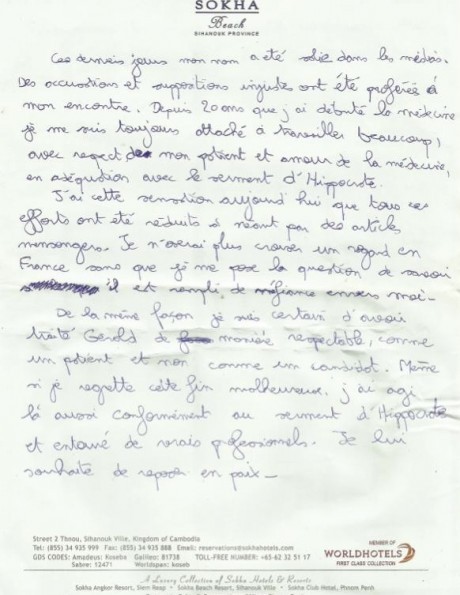 SOKHA
Beach
SIHANOUK PROVINCE
Ces derniers jours mon nom a été sali dans les médias.
Des accusations et suppositions injustes ont été proférées à
mon encontre. Depuis 20 ans que j'ai débuté la médecine
je me suis toujours attaché à travailler beaucoup,
avec respect de mon patient et amour de la médecine,
en adéquation avec le serment d'Hippocrate.
J'ai cette sensation aujourd'hui que tous ces
efforts ont été réduits à néant par des articles
mensongers. Je n'oserai plus croiser un regard en
France sans que je me pose la question de savoir
s'il est rempli de méfiance envers moi-
De la même façon je suis certain d'avoir
traité Gérald de manière respectable, comme
un patient et non comme un candidat. Même
si je regrette cette fin malheureuse, j'ai agi
là aussi conformément au serment d'Hippocrate
et entouré de vrais professionnels. Je lui
souhaite de reposer en paix-
Street 2 Thnou, Sihanouk Ville, Kingdom of Cambodia
Tel: (855) 34 935 999 Fax: (855) 34 935 888 Email: reservations@sokhahotels.com
GDS CODES: Amadeus: Koseba Galileo: 81738 TOLL-FREE NUMBER: +65-62 32 51 17
Sabre: 12471 Worldspan: koseb
MEMBER OF
WORLDHOTELS
FIRST CLASS COLLECTION
A Luxury Collection of Sokha Hotels & Resorts
Sokha Angkor Resort, Siem Reap • Sokha Beach Resort, Sihanouk Ville • Sokha Club Hotel, Phnom Penh